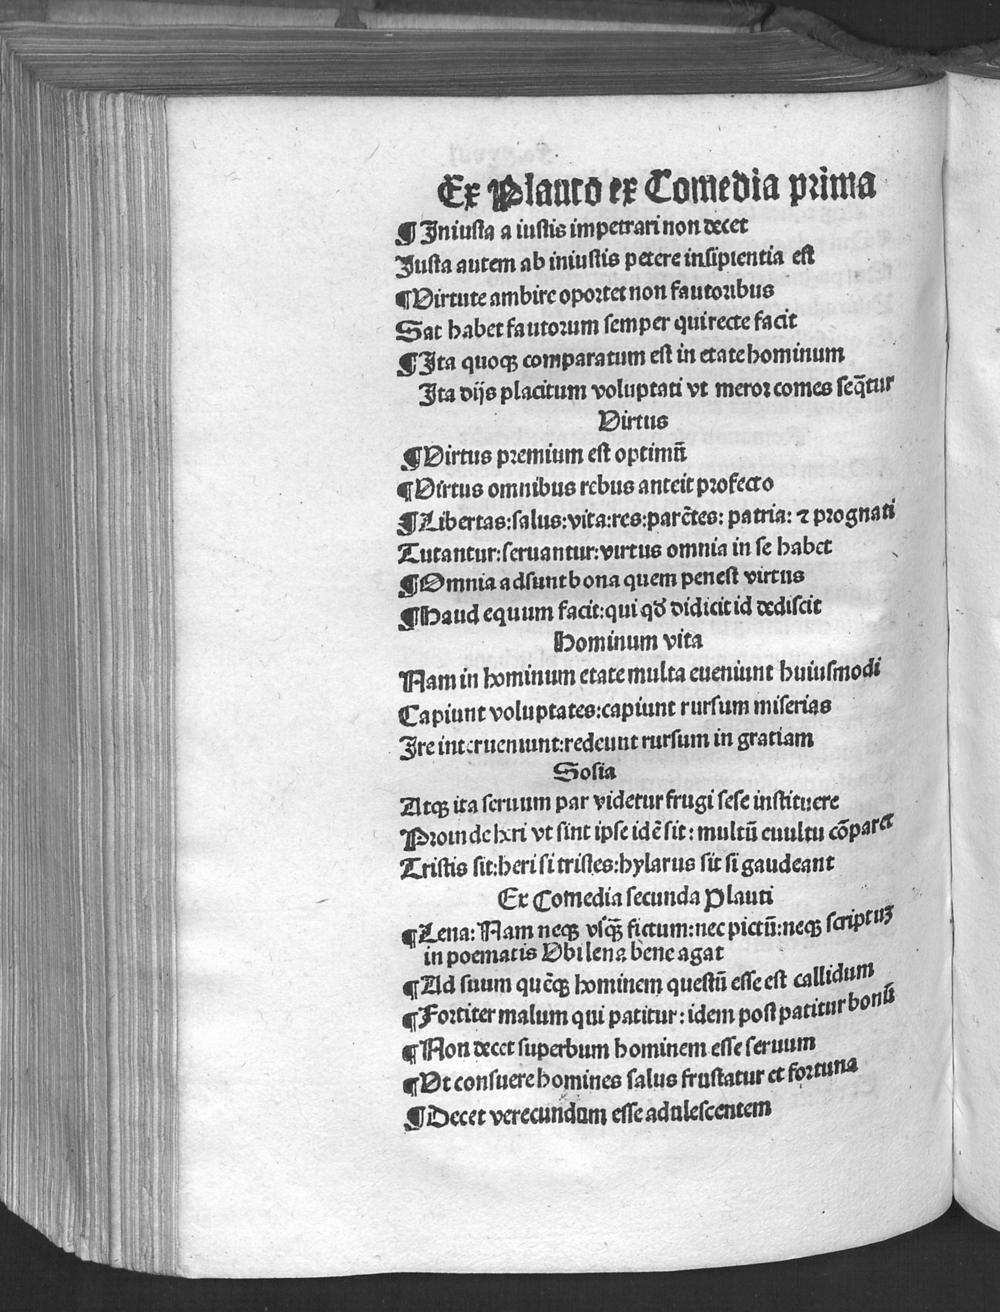 Ex Plauto ex Comedia prima
¶ Iniusta a iustis impetrari non decet
Iusta autem ab iniustis petere insipientia est
¶ Virtute ambire oportet non fautoribus
Sat habet fautorum semper qui recte facit
¶ Ita quoqꝫ comparatum est in etate hominum
Ita dijs placitum voluptati vt meror comes seq̄tur
Virtus
¶ Virtus premium est optimū
¶ Virtus omnibus rebus anteit profecto
¶ Libertas:salus:vita:res:parētes: patria: ⁊ prognati
Tutantur:seruantur:virtus omnia in se habet
¶ Omnia adsunt bona quem penest virtus
¶ Haud equum facit:qui qd̕ didicit id dediscit
Hominum vita
Nam in hominum etate multa eueniunt huiusmodi
Capiunt voluptates:capiunt rursum miserias
Ire interueniunt:redeunt rursum in gratiam
Sosia
Atqꝫ ita seruum par videtur frugi sese instituere
Proinde heri vt sint ipse idē sit: multū euultu cōparet
Tristis sit:heri si tristes:hylarus sit si gaudeant
Ex Comedia secunda Plauti
¶ Lena: Nam neqꝫ vsqꝫ̄ fictum:nec pictū:neqꝫ scriptuꝫ
in poematis Vbi lena bene agat
¶ Ad suum quēqꝫ hominem questū esse est callidum
¶ Fortiter malum qui patitur: idem post patitur bonū
¶ Non decet superbum hominem esse seruum
¶ Vt consuere homines salus frustatur et fortuna
¶ Decet verecundum esse adulescentem